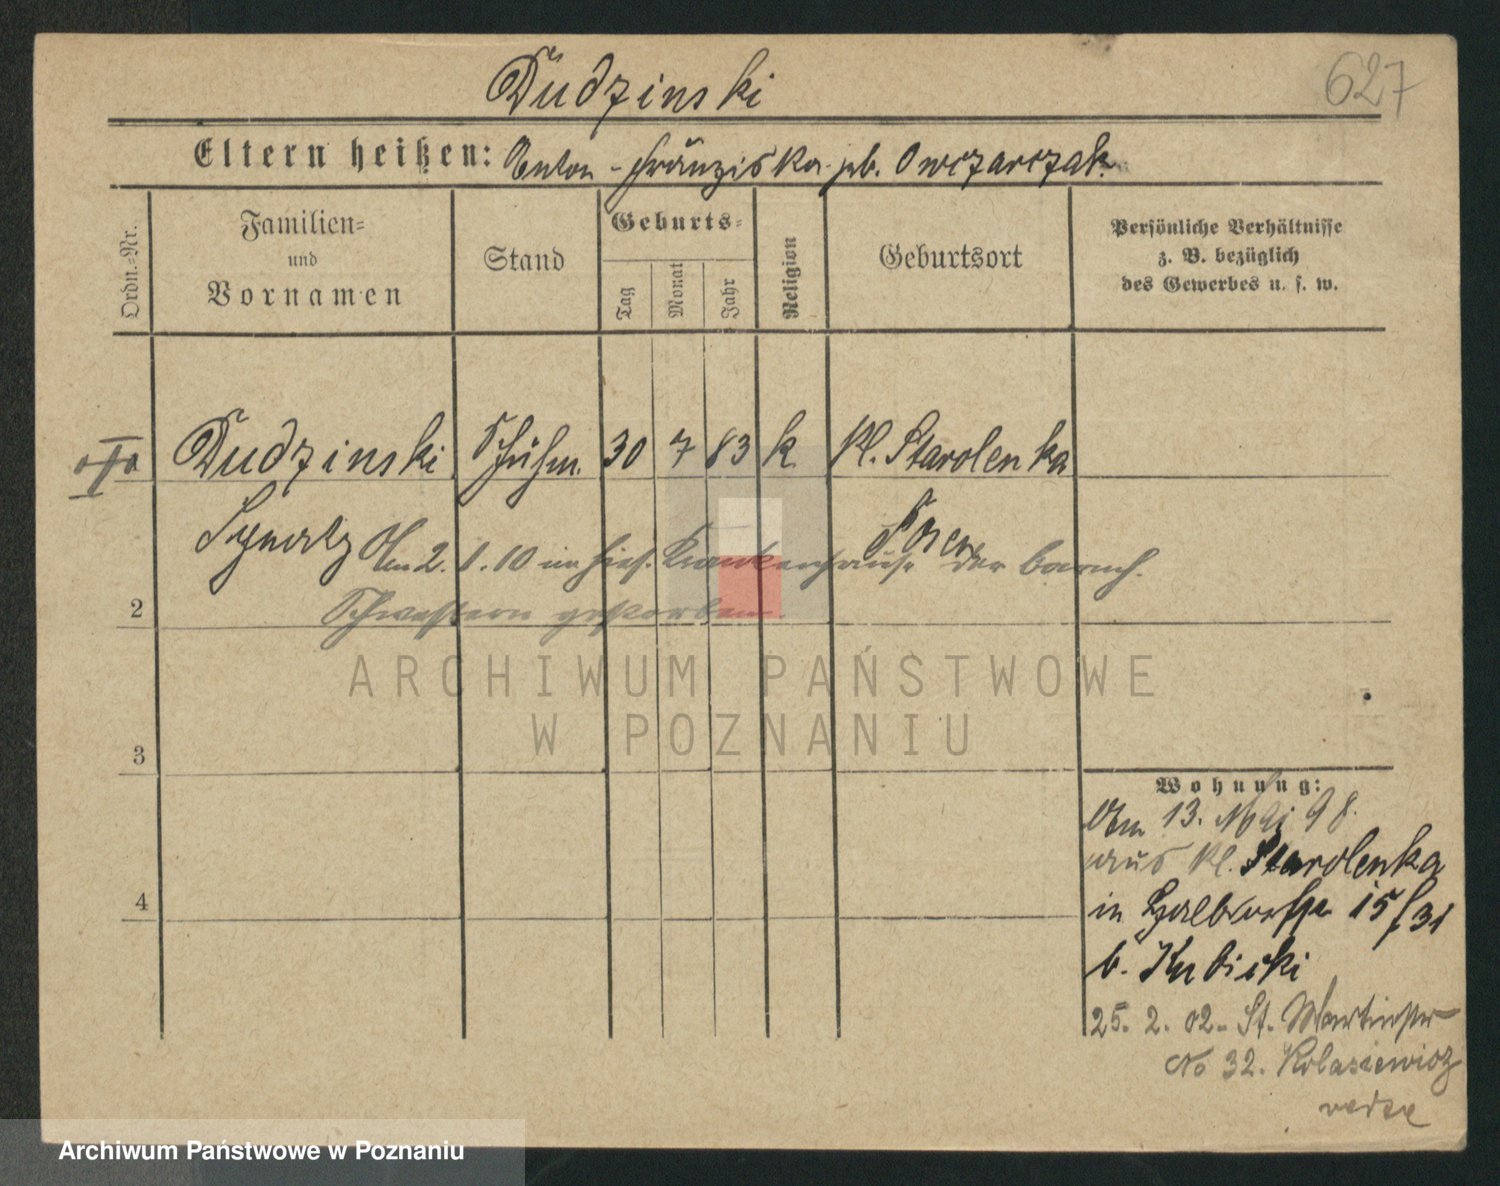 627
Dudzinski
Eltern heißen: Anton - Franziska geb. Owczarczak.
Ordn.-Nr.
Familien-
und
Vornamen
Stand
Geburts-
Tag
Monat
Jahr
Religion
Geburtsort
Persönliche Verhältnisse
z. B. bezüglich
des Gewerbes u. s. w.
Dudzinski Schuhm. 30 7 83 k. Kl. Starolenka
Ignatz Posen
Am 2. 1. 10 im hies. Krankenhause der barmh.
Schwestern gestorben.
2
3
4
ARCHIWUM PAŃSTWOWE
W POZNANIU
Wohnung:
Am 13. Mai 98.
aus Kl. Starolenka
in Halbdorfstr 15/31
b. Kubicki
25. 2. 02. St. Martinstr
No 32. Kolasiewicz
Archiwum Państwowe w Poznaniu